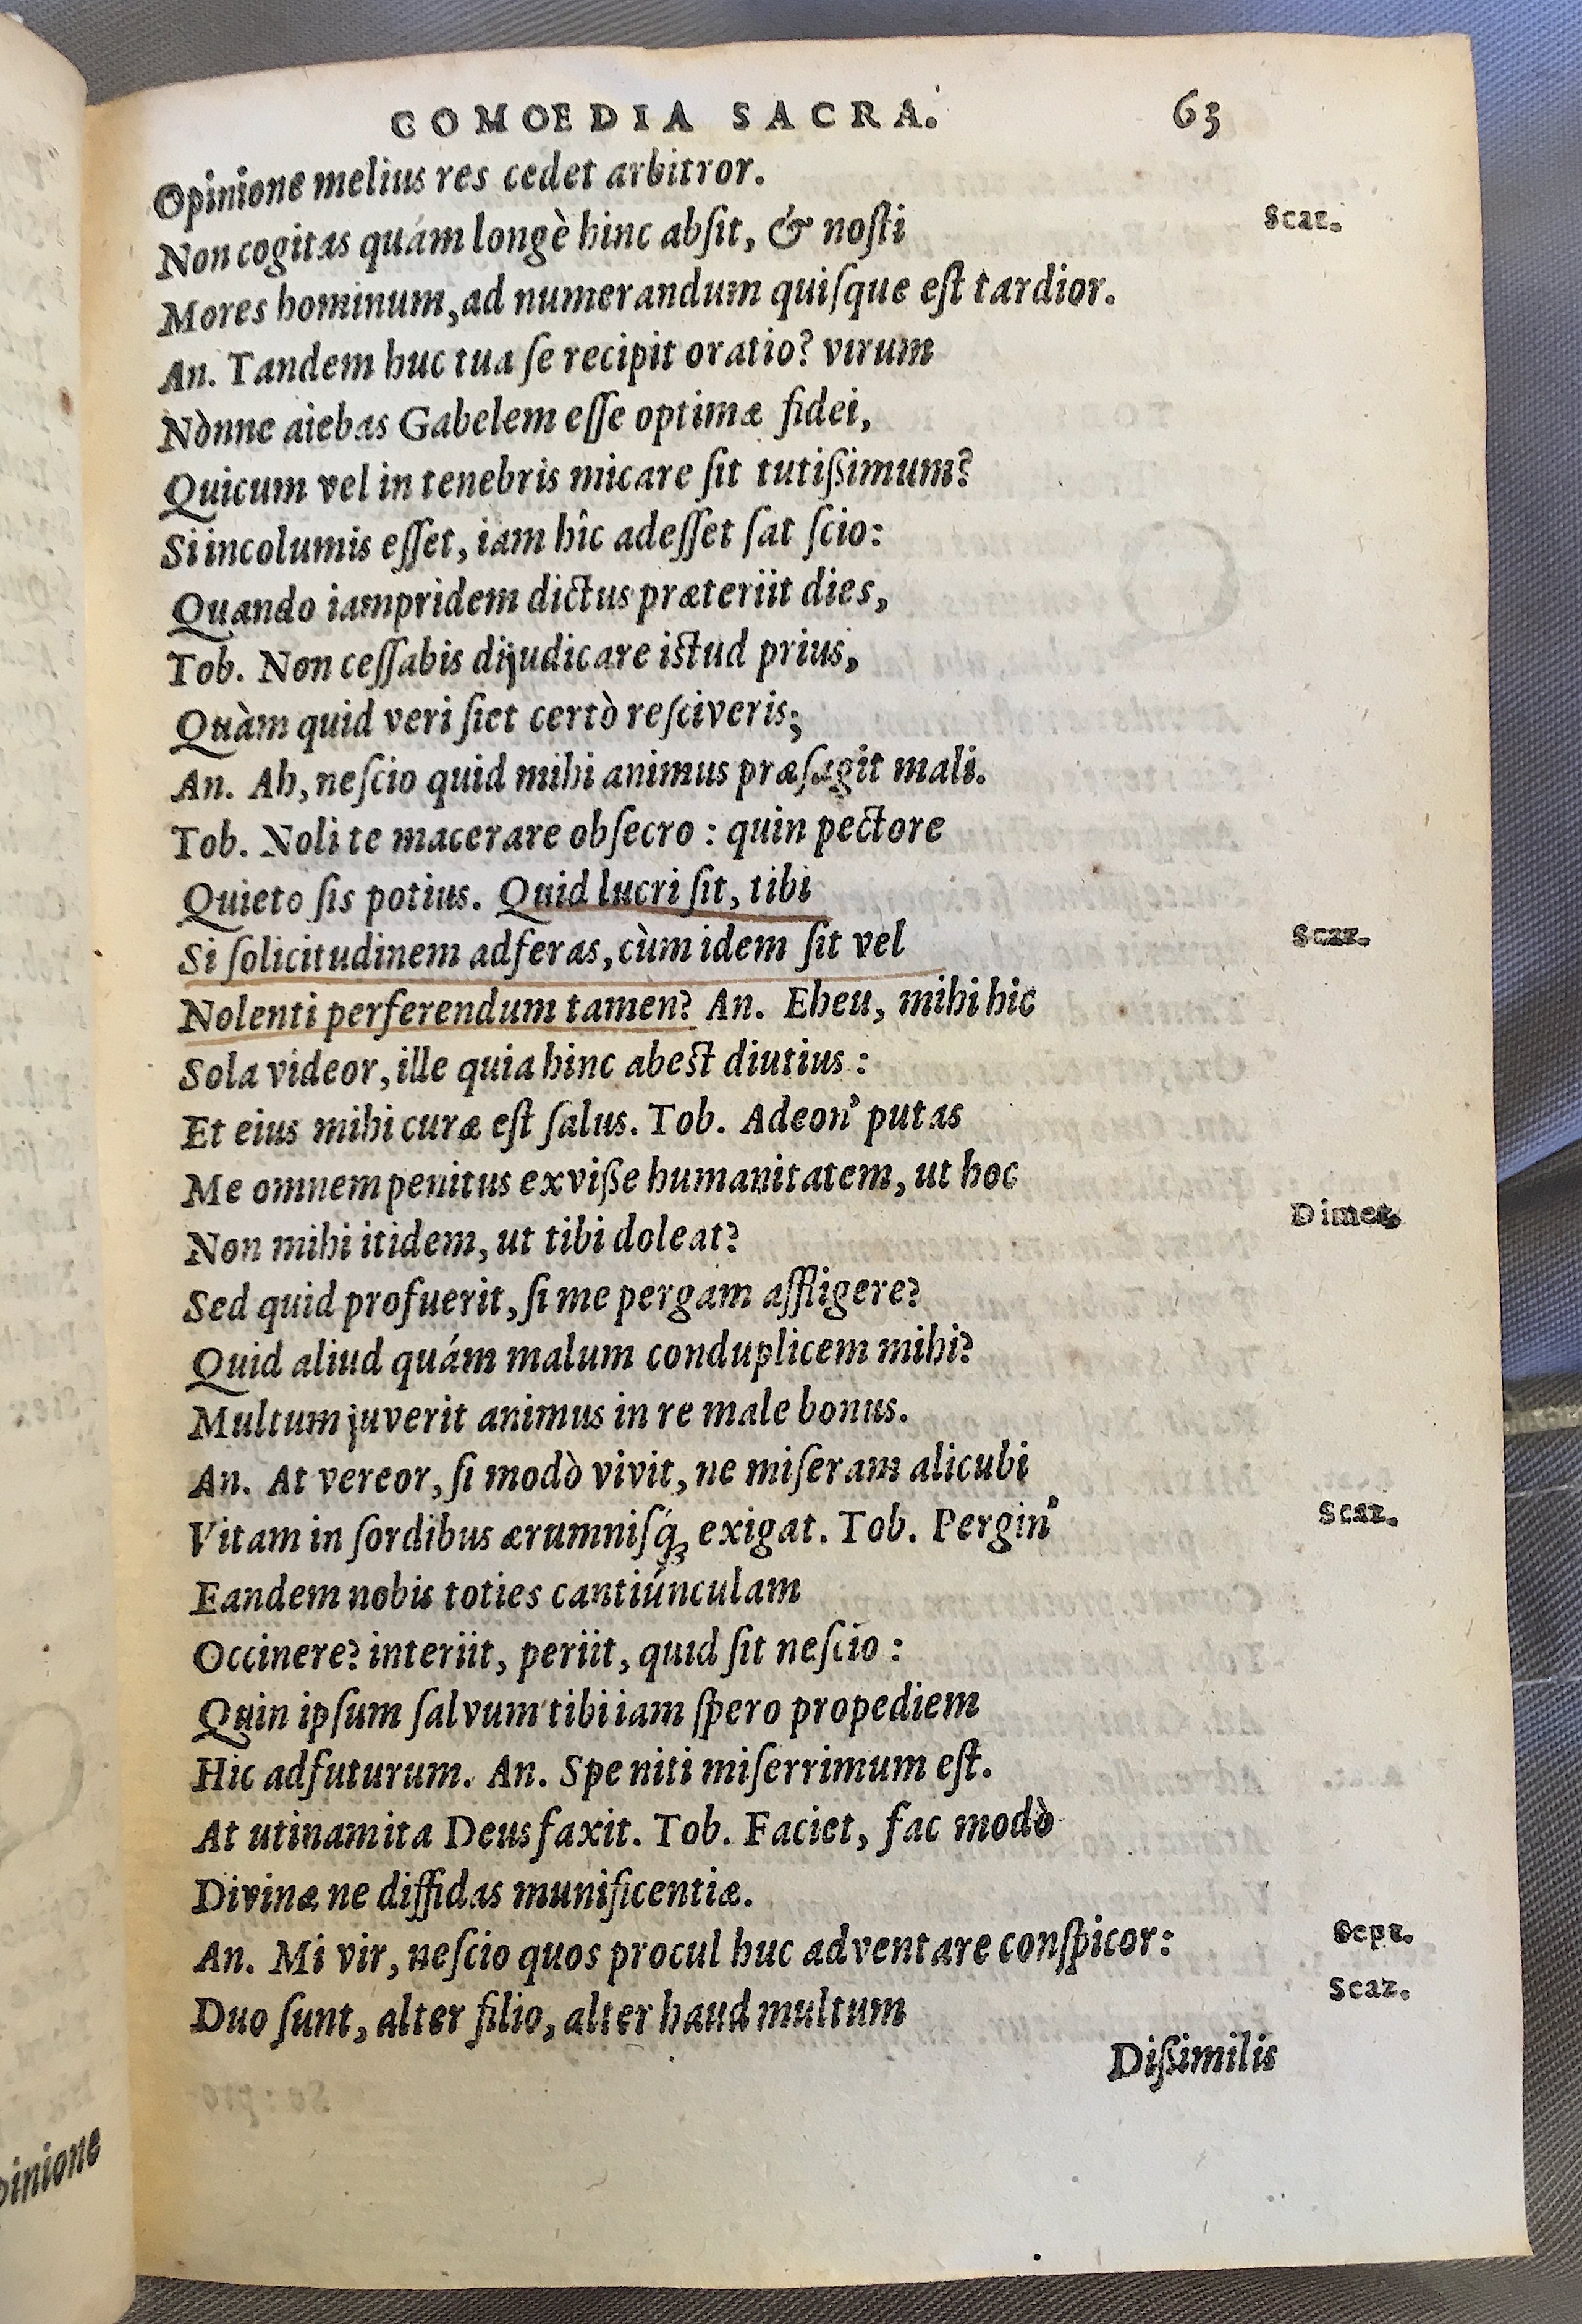 COMOEDIA SACRA. 63
Opinione melius res cedet arbitror.
Non cogitas quám longè hinc absit, & nosti Scaz.
Mores hominum, ad numerandum quisque est tardior.
An. Tandem huc tua se recipit oratio? virum
Nònne aiebas Gabelem esse optimæ fidei,
Quicum vel in tenebris micare sit tutißimum?
Si incolumis esset, iam hîc adesset sat scio:
Quando iampridem dictus præteriit dies,
Tob. Non cessabis dijudicare istud prius,
Quàm quid veri siet certò resciveris;
An. Ah, nescio quid mihi animus præsagit mali.
Tob. Noli te macerare obsecro : quin pectore
Quieto sis potius. Quid lucri sit, tibi
Si solicitudinem adferas, cùm idem sit vel Scaz.
Nolenti perferendum tamen? An. Eheu, mihi hic
Sola videor, ille quia hinc abest diutius :
Et eius mihi curæ est salus. Tob. Adeon' putas
Me omnem penitus exviße humanitatem, ut hoc
Non mihi itidem, ut tibi doleat? Dimet.
Sed quid profuerit, si me pergam affligere?
Quid aliud quám malum conduplicem mihi?
Multum juverit animus in re male bonus.
An. At vereor, si modò vivit, ne miseram alicubi
Vitam in sordibus ærumnisq́ꝫ exigat. Tob. Pergin' Scaz.
Eandem nobis toties cantiúnculam
Occinere? interiit, periit, quid sit nescio :
Quin ipsum salvum tibi iam spero propediem
Hic adfuturum. An. Spe niti miserrimum est.
At utinam ita Deus faxit. Tob. Faciet, fac modò
Divinæ ne diffidas munificentiæ.
An. Mi vir, nescio quos procul huc adventare conspicor: Sept.
Duo sunt, alter filio, alter haud multum Scaz.
Dißimilis
pinione